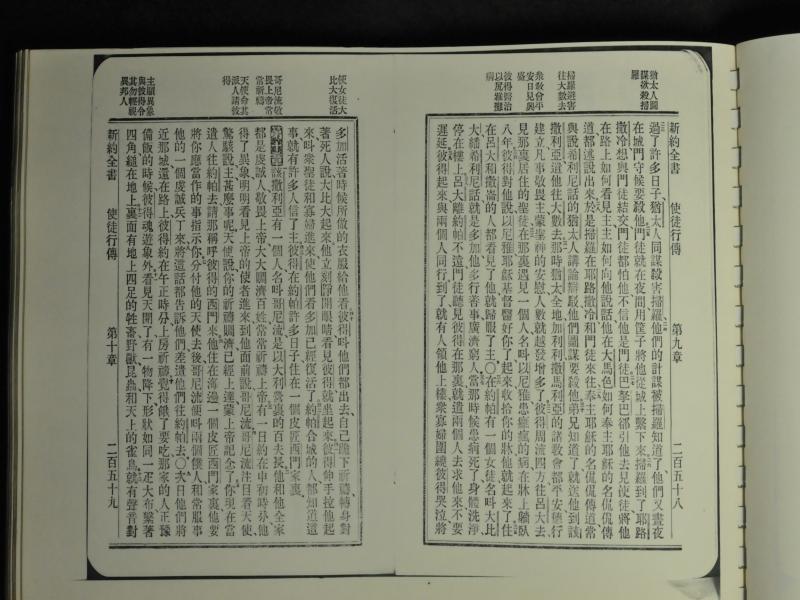 猶太人圖
謀欲殺掃
羅
掃羅避害
往大數去
衆敎會平
安日見興
盛
彼得醫治
以尼雅癱
病
新約全書　使徒行傳　第九章　二百五十八
過了許多日子猶太人同謀殺害掃羅他們的計謀被掃羅知道了他們又晝夜
在城門守候要殺他門徒就在夜間用筐子將他從城上繫下來掃羅到了耶路
撒冷想與門徒結交門徒都怕他不信他是門徒巴拏巴卻引他去見使徒將他
在路上如何看見主主如何向他說話他在大馬色如何奉耶穌的名侃侃傳
道都述說出來於是掃羅在耶路撒冷和門徒來往奉主耶穌的名侃侃傳道常
與說希利尼話的猶太人講論辯駁他們圖謀要殺他弟兄知道了就送他到該
撒利亞道他往大數去那時猶太全地加利利撒馬利亞的諸敎會都平安穩行
建立凡事敬畏主蒙聖神的安慰人數就越發增多了彼得周流四方往呂大去
見那裏居住的聖徒在那裏遇見一個人名叫以尼雅患癱瘋的病在牀上躺臥
八年彼得對他說以尼雅耶穌基督醫好你了起來收拾你的牀他就起來了住
在呂大和撒崙的人都看見了他就歸服了主〇在約帕有一個女徒名叫大比
大繙希利尼話就是多加他多行善事廣濟窮人當那時候患病死了身體洗淨
停在樓上呂大離約帕不遠門徒聽見彼得在那裏就遣兩個人去求他來不要
遲延彼得起來與兩個人同行到了就有人領他上樓衆寡婦圍繞彼得哭泣將
使女徒大
比大復活
哥尼流敬
畏上帝常
常祈禱
天使命其
派人請彼
得
主顯異象
與彼得令
其勿輕視
異邦人
多加活著時候所做的衣服給他看彼得叫他們都出去自己跪下祈禱轉身對
著死人說大比大起來他立刻睜開眼睛看見彼得就坐起來彼得伸手拉他起
來叫衆聖徒和寡婦進來使他們看多加已經復活了約帕合城的人都知道這
事就有許多人信了主彼得在約帕許多日子住在一個皮匠西門家裏
第十章該撒利亞有一個人名叫哥尼流是以大利營裏的百夫長他和他全家
都是虔誠人敬畏上帝大大賙濟百姓常常祈禱上帝有一日約在申初時分他
得了異象明明看見上帝的使者進來到他面前說哥尼流哥尼流注目看天使
驚駭說主甚麼事呢天使說你的祈禱賙濟已經上達蒙上帝記念了你現在當
遣人往約帕去請那稱呼彼得的西門來他住在海邊一個皮匠西門家裏他要
將你應當作的事指示你分付他的天使去後哥尼流便叫兩個僕人和常服事
他的一個虔誠兵丁來將這話都告訴他們差遣他們往約帕去〇次日他們將
近那城還在路上彼得約在午正時分上房祈禱覺得餓了要吃那家的人正豫
備飯的時候彼得魂遊象外看見天開了有一物降下形狀如同一疋大布繫著
四角縋在地上裏面有地上四足的牲畜野獸昆蟲和天上的雀鳥就有聲音對
新約全書　使徒行傳　第十章　二百五十九